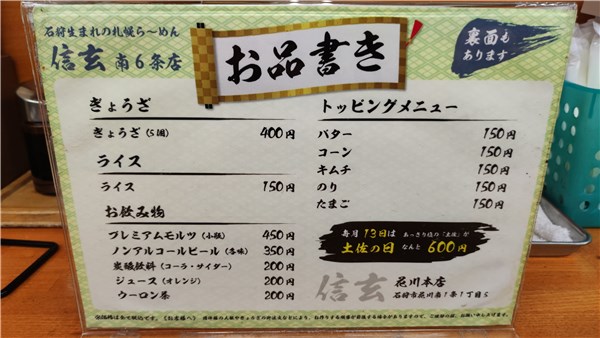 石狩生まれの札幌ら〜めん
信玄 南6条店
お品書き
裏面も
あります
ぎょうざ
ぎょうざ(5個) 400円
ライス
ライス 150円
お飲み物
プレミアムモルツ(小瓶) 450円
ノンアルコールビール(各種) 350円
炭酸飲料(コーラ・サイダー) 200円
ジュース(オレンジ) 200円
ウーロン茶 200円
トッピングメニュー
バター 150円
コーン 150円
キムチ 150円
のり 150円
たまご 150円
毎月13日は あっさり塩の「土佐」が
土佐の日 なんと600円
信玄 花川本店
石狩市花川南1条1丁目5